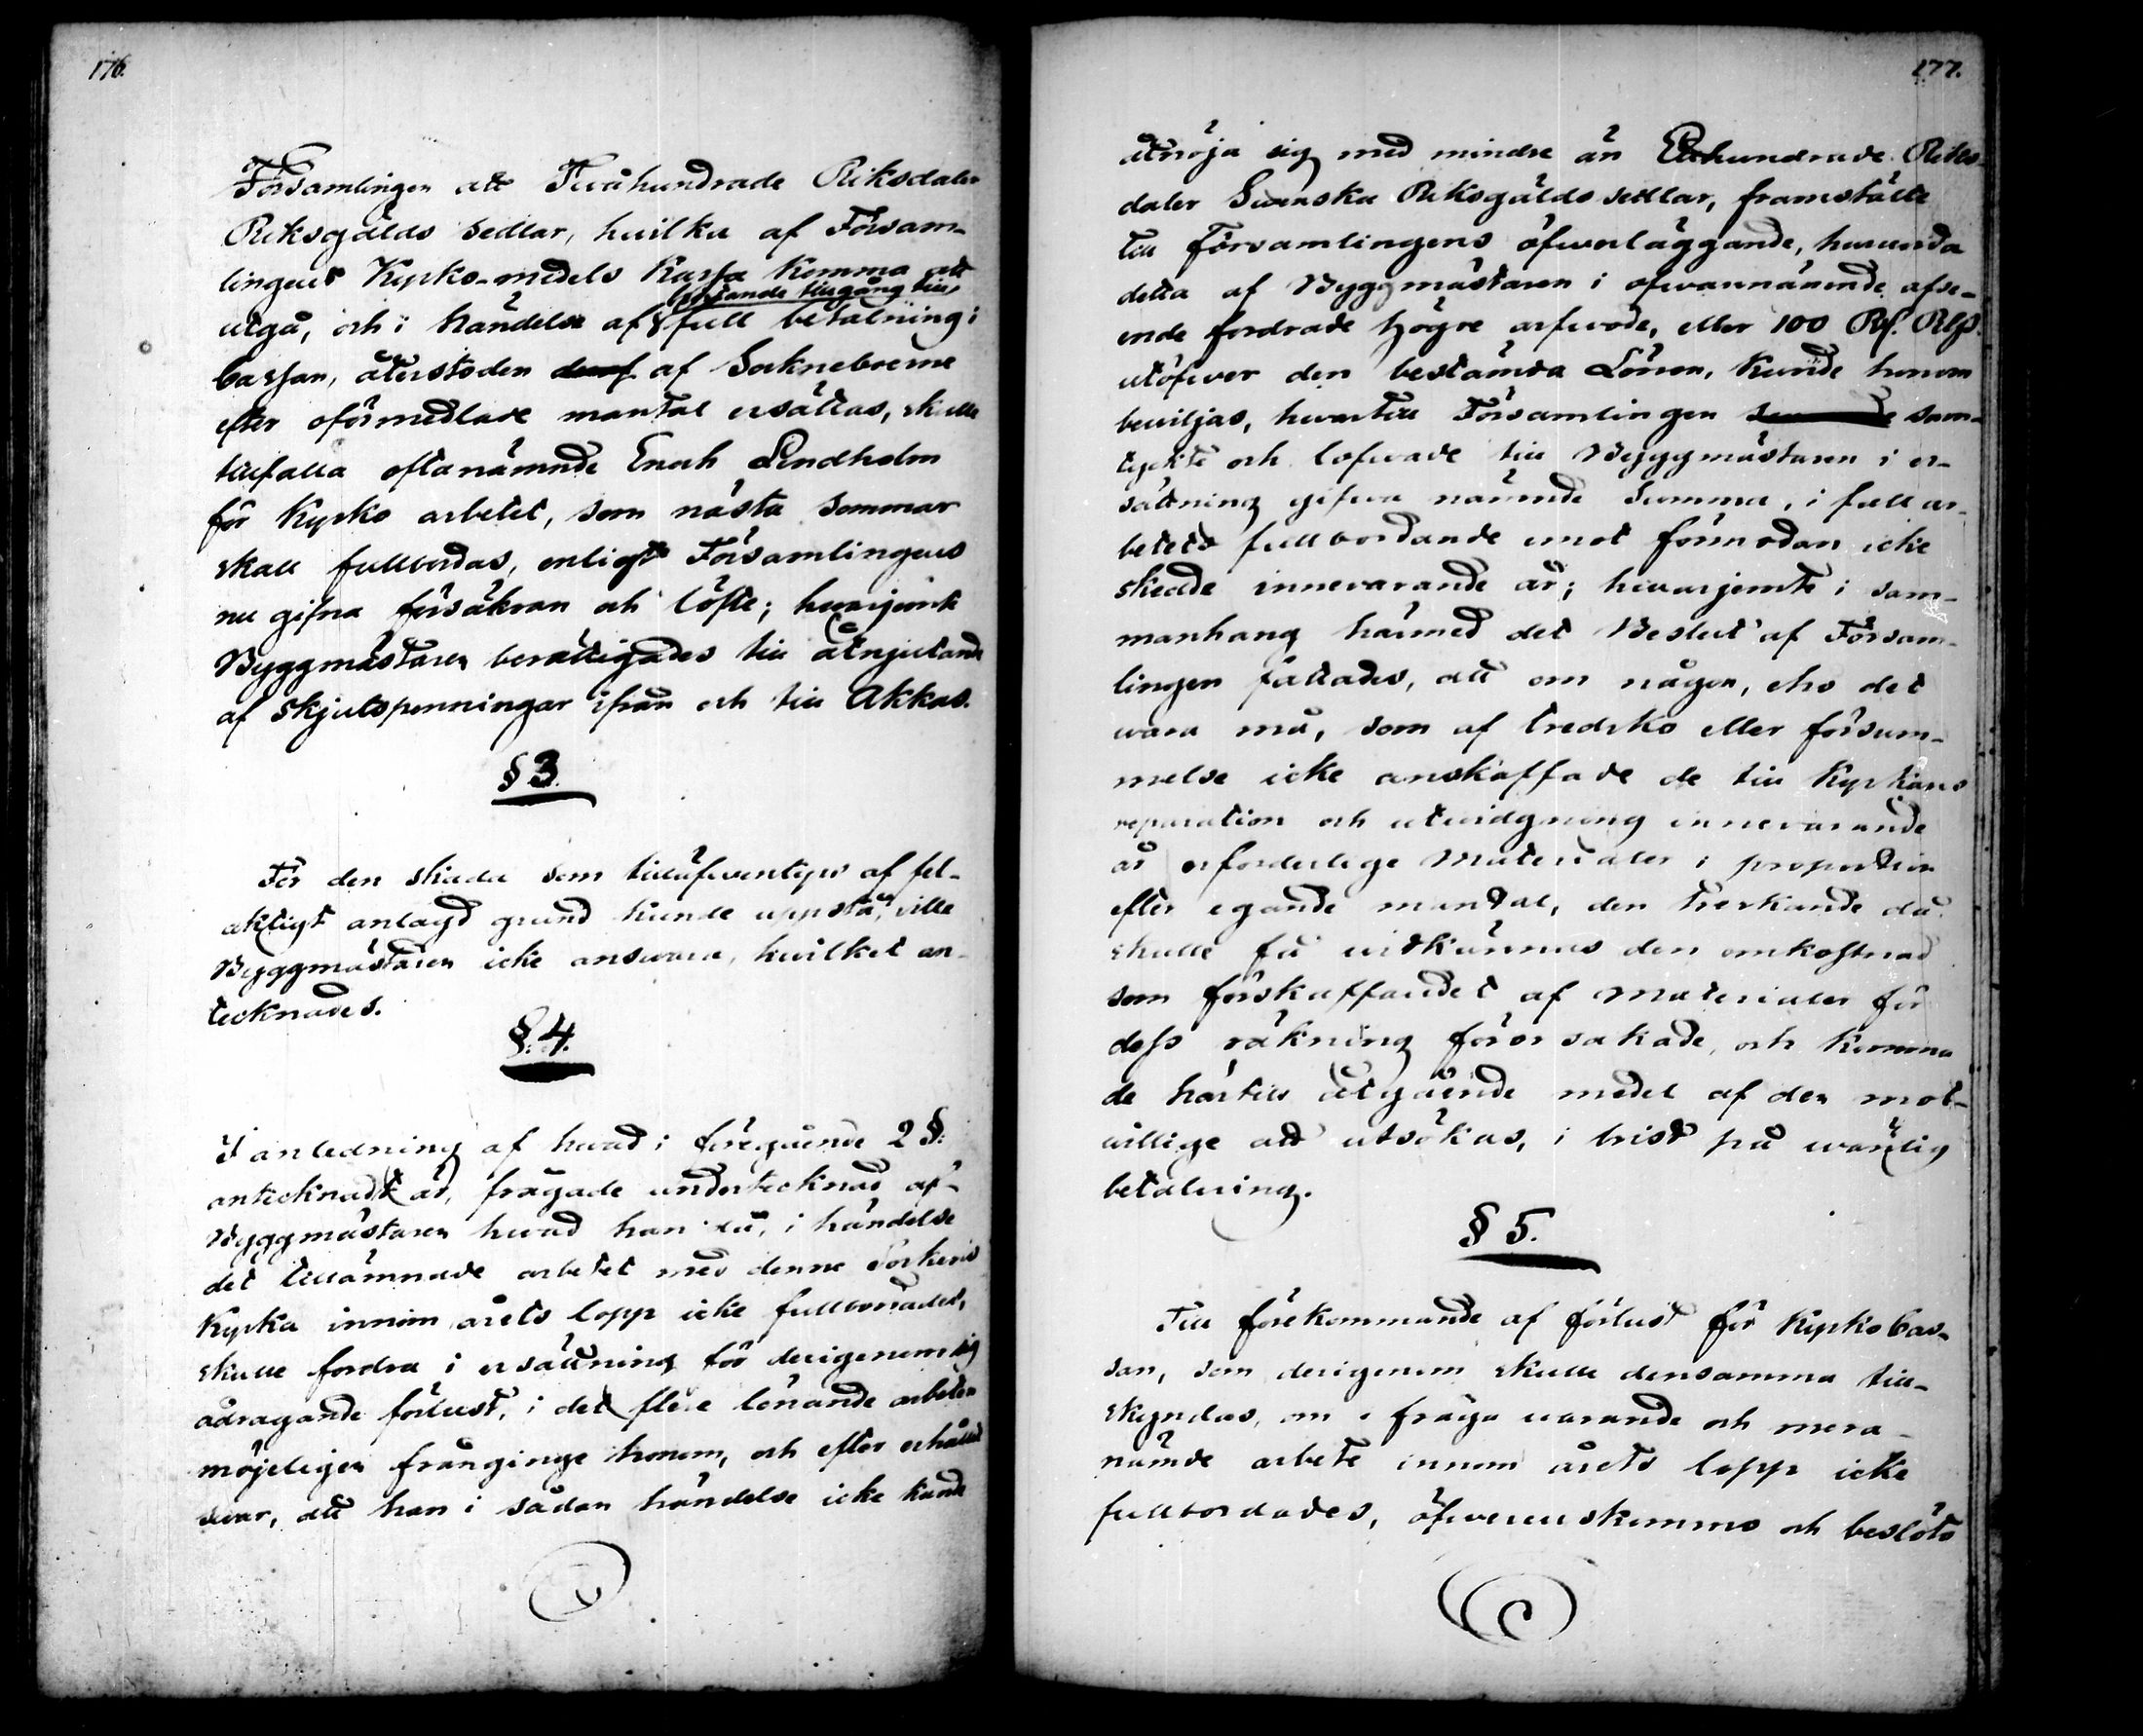 176.
Församlingen att Tvåhundrade Riksdaler
Riksgälds Sedlar, hvilka af Försam-
lingens Kyrko-medels Kassa komma att
bristande tillgång till
utgå, och i händelse af full betalning i
Cassan, återstoden deraf af Sockneboerne
efter oförmedlade mantal ersättas, skulle
tillfalla oftanämnde Enoch Lindholm
för Kyrko arbetet, som nästa Sommar
skall fullbordas, enligt Församlingens
nu gifna försäkran och löfte; hvarjemte
Byggmästaren berättigades till åtnjutande
af skjutspenningar ifrån och till Akkas.
§ 3.
För den skada som tilläfventyrs af fel-
aktigt anlagd grund kunde uppstå, ville
Byggmästaren icke answara, hvilket an-
tecknades.
§: 4.
I anledning af hvad i föregående 2 §:
antecknadt är, frågade undertecknad af
Byggmästaren hvad han då, i händelse
det tillämnade arbetet med denne Sockens
Kyrka innom årets lopp icke fullbordades,
skulle fordra i ersättning för derigenom sig
ådragande förlust, i det flere lönande arbeten
möjeligen frånginge honom, och efter erhållet
svar, att han i sådan händelse icke kunde
177.
åtnöja sig med mindre än Etthundrade Riks-
daler Swenska Riksgälds sedlar, framstälte
till Församlingens öfwerläggande, huruvida
detta af Byggmästaren i ofwannämnde afse-
ende fordrade högre arfwode, eller 100 Rd. Rgs.
utöfwer den bestämda Lönen, kunde honom
bewiljas, hwartill Församlingen sam-
tyckte och lofwade till Byggmästaren i er-
sättning gifwa nämnde Summa, i fall ar-
betets fullbordande emot förmodan icke
skedde innevarande år; hwarjemte i sam-
manhang härmed det Beslut af Försam-
lingen fattades, att om någon, eho det
wara må, som af tredsko eller försum-
melse icke anskaffade de till Kyrkans
reparation och utvidgning innevarande
år erforderlige Materialier i proportion
efter egande mantal, den treskande då
skulle få widkännas den omkostnad
som förskaffandet af Materialier för
dess räkning förorsakade, och komma
de härtill åtgående medel af den mot-
willige att utsökas, i brist på wänlig
betalning.
§ 5.
Till förekommande af förlust för Kyrko Cas-
san, som derigenom skulle densamma till-
skyndas, om i fråga warande och mera-
nämde arbete innom årets lopp icke
fullbordades, öfwerenskommo och beslöto